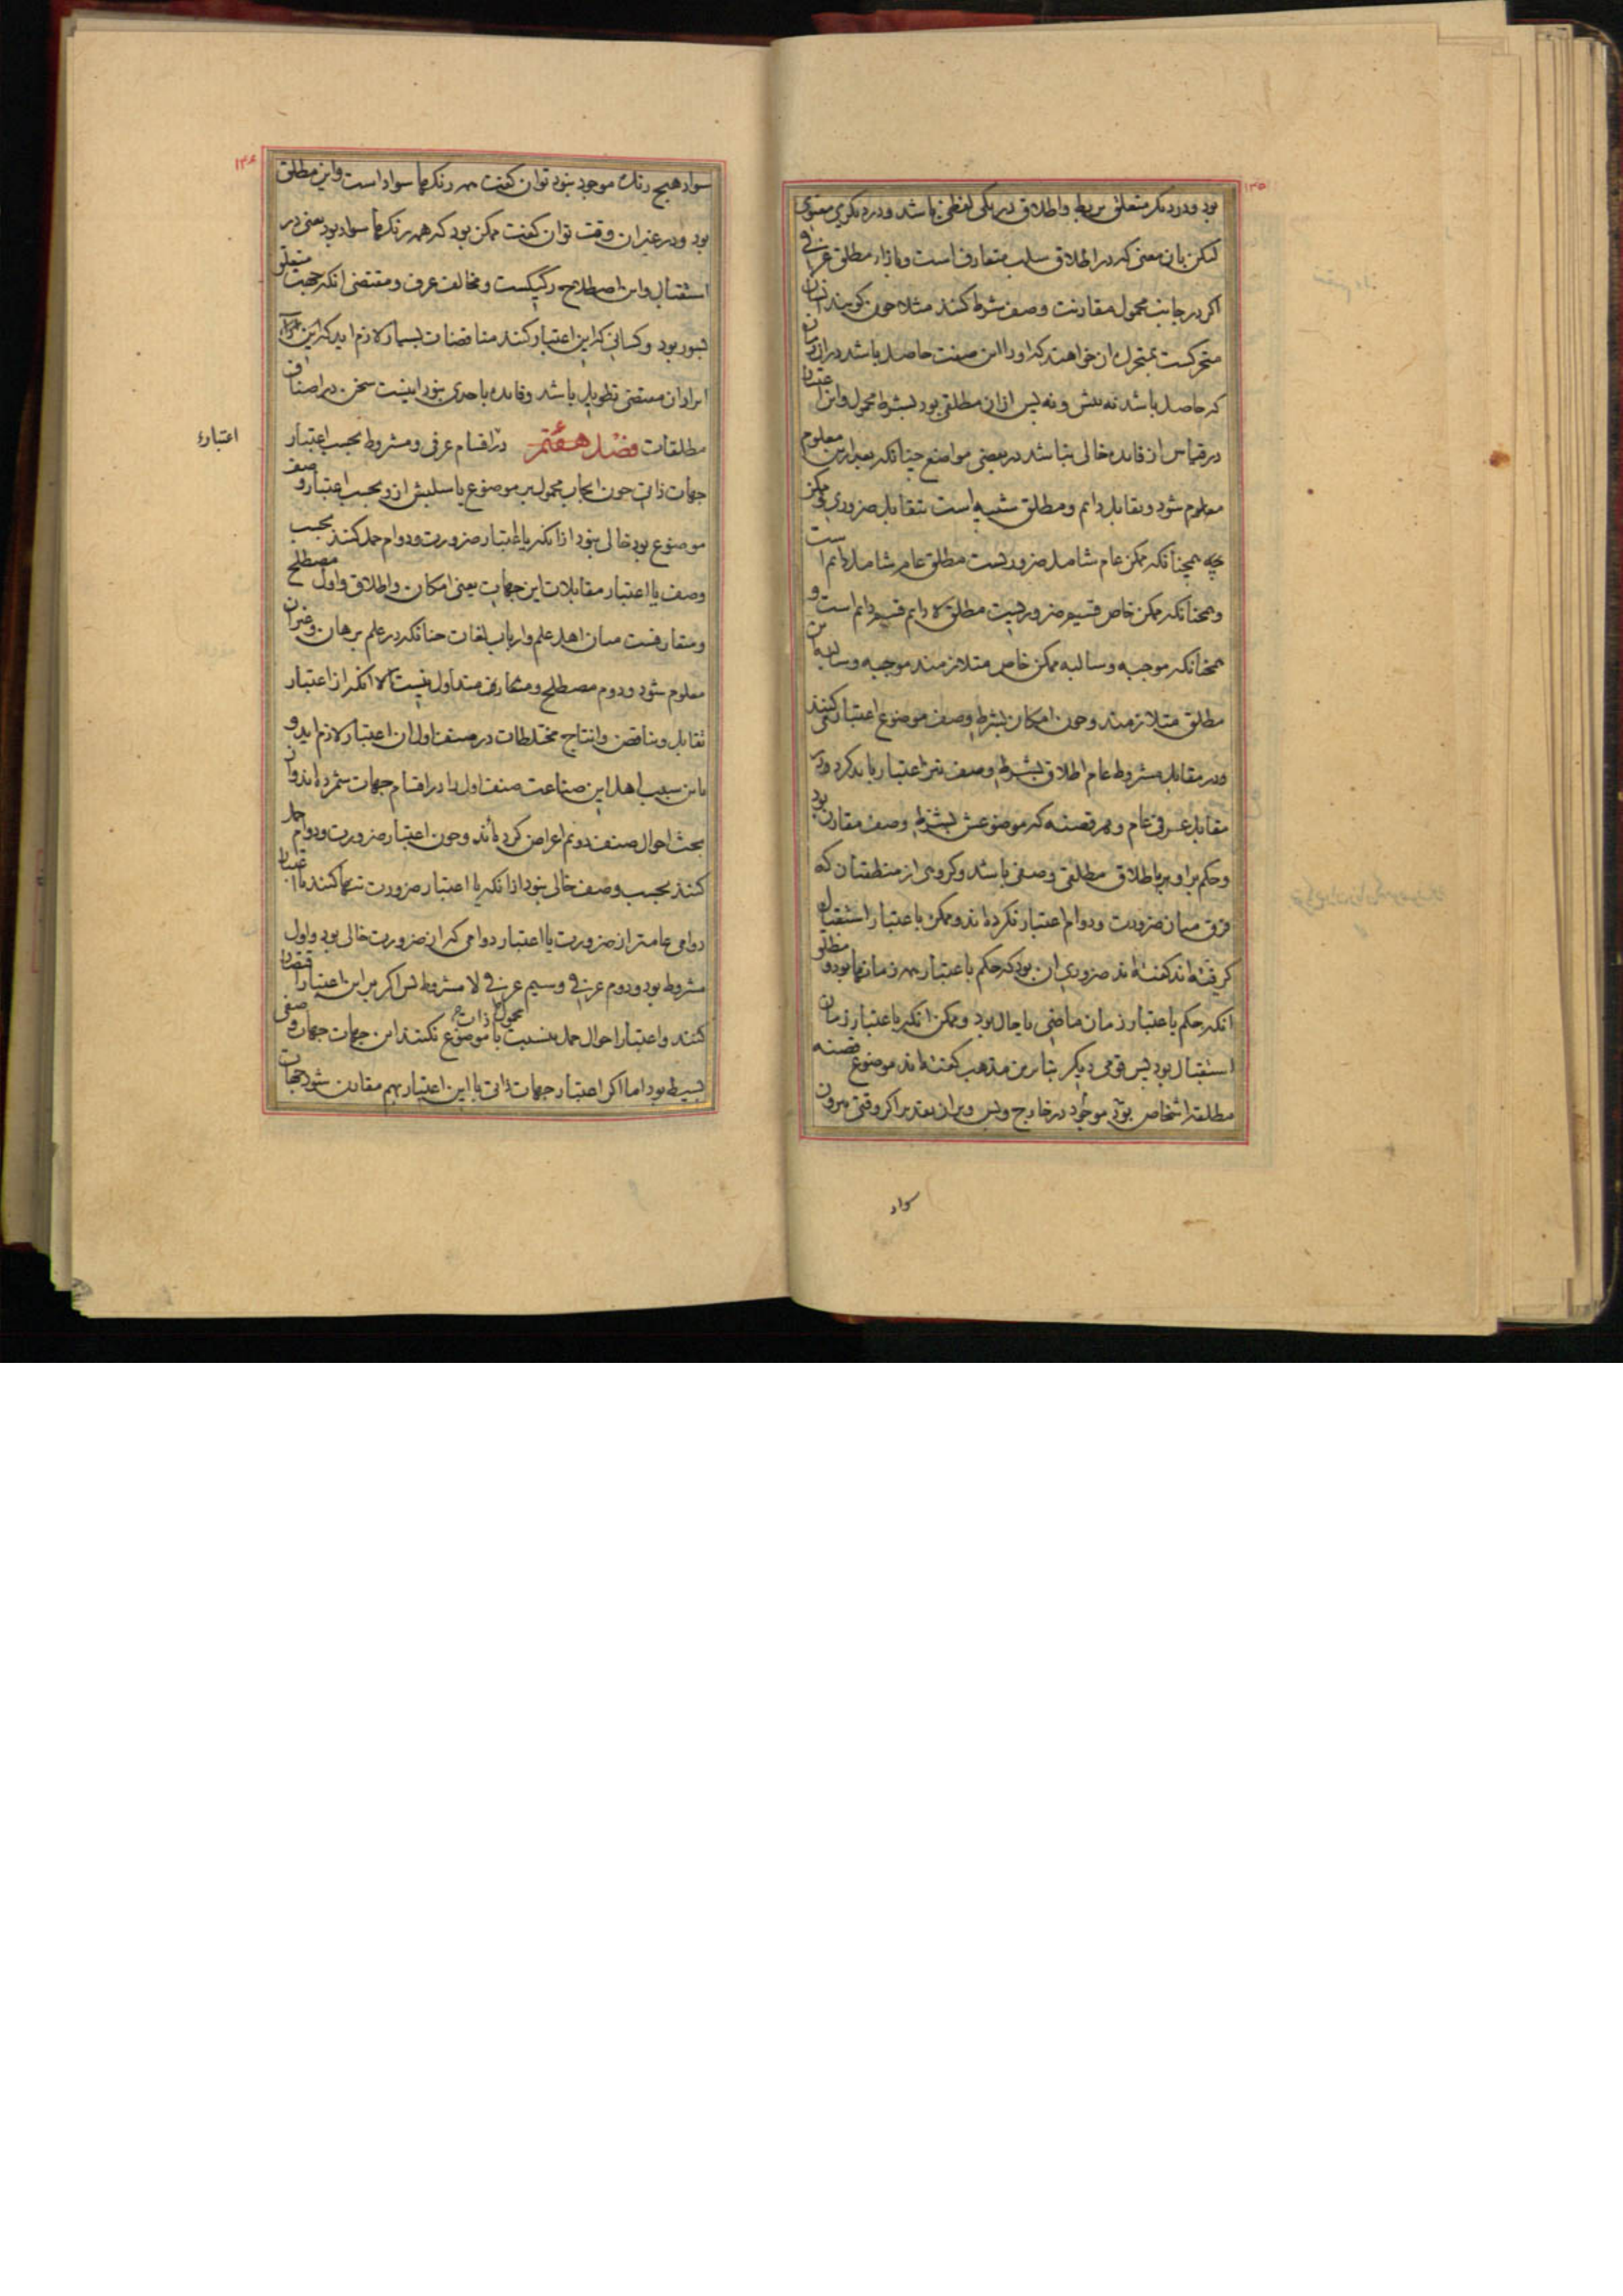 ۱۳۵
بود و در دیگر متعلق بربط و اطلاق در یکی لفظی باشد و در دیگری معنوی
لیکن بان معنی که در اطلاق سلب متعارف است و بازاء مطلق عرفی
اکر در جانب محمول مقارنت وصف شرط کنند مثلا چون کویند انسان
متحرکست بمتحرک ان خواهند که او را این صفت حاصل باشد در ان زمان
که حاصل باشد نه پیش و نه پس از ان مطلقی بود بشرط محمول و این اعتبار
در قیاس از فایده خالی نباشد در بعضی مواضع چنانکه بعد ازین معلوم
معلوم شود و تقابل دایم و مطلق شبیه است بتقابل ضروری و ممکن
چه همچنانکه ممکن عام شامل ضروریست مطلق عام شامل دایم است
و همچنانکه ممکن خاص قسیم ضروریست مطلق لادایم قسیم دایم است و
همچنانکه موجبه و سالبه ممکن خاص متلازمند موجبه و سالبه این
مطلق متلازمند و چون امکان بشرط وصف موضوع اعتبار کنند
و در مقابل مشروط عام اطلاق بشرط وصف نیز اعتبار باید کرد و در
مقابل عرفی عام و هر قضیه که موضوعش بشرط وصف مقارن بود
و حکم برو بر باطلاق مطلقی وصفی باشد و کروهی از منطقیان که
فرق میان ضرورت و دوام اعتبار نکرده اند و ممکن باعتبار استقبال
کرفته اند کفته اند ضروری ان بود که حکم باعتبار همه زمانها بود و مطلق
انکه حکم باعتبار زمان ماضی یا حال بود و ممکن انکه باعتبار زمان
استقبال بود پس قومی دیکر بنا برین مذهب کفته اند موضوع قضیه
مطلقه اشخاص بود موجود در خارج و بس و بران تقدیر اکر وقتی بیرون
سواد
۱۳۶
سواد هیچ رنک موجود نبود توان کفت همه رنکها سواد است و این مطلق
بود و در غیر ان وقت توان کفت ممکن بود که همه رنکها سواد بود یعنی در
استقبال و این اصطلاح رکیکست و مخالف عرف و مقتضی انکه جهت متعلق
بسور بود و کسانی که این اعتبار کنند مناقضات بسیار لازم اید که این
ایراد ان مقتضی تطویل باشد و فایده باحدی نبود اینست سخن در اصناف
مطلقات فصل هفتم در اقسام عرفی و مشروط بحسب اعتبار
اعتبار
جهات ذاتی چون ایجاب محمول بر موضوع یا سلبش ازو بحسب اعتبار وصف
موضوع بود خالی نبود از انکه یا اعتبار ضرورت و دوام حمل کنند بحسب
وصف یا اعتبار مقابلات این جهات یعنی امکان و اطلاق و اول مصطلح
و متعارفست میان اهل علم و ارباب لغات چنانکه در علم برهان و غیر ان
معلوم شود و دوم مصطلح و متعارف متداول نیست الا انکه از اعتبار
تقابل و تناقض و انتاج مختلطات در صنف اول ان اعتبار لازم اید و
باین سبب اهل این صناعت صنف اول را در اقسام جهات شمرده اند و از
بحث احوال صنف دوم اعراض کرده اند و چون اعتبار ضرورت و دوام حمل
کنند بحسب وصف خالی نبود از انکه یا اعتبار ضرورت تنها کنند یا اعتبار
دوامی عامتر از ضرورت یا اعتبار دوامی که از ضرورت خالی بود و اول
مشروط بود و دوم عرفی و سیم عرفی لا مشروط پس اکر بر این اعتبار اقتصار
کنند و اعتبار احوال حمل بنسبت با موضوع نکنند این جهات جهات وصفی
محمول با ذات
بسیط بود اما اکر اعتبار جهات ذاتی با این اعتبار بهم مقارن شود جهات